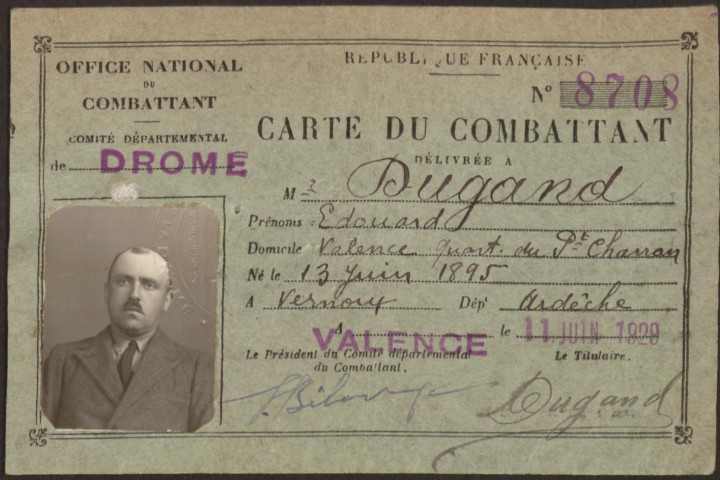 OFFICE NATIONAL
DU
COMBATTANT
COMITÉ DÉPARTEMENTAL
de DROME
RÉPUBLIQUE FRANÇAISE
N° 8708
CARTE DU COMBATTANT
DÉLIVRÉE A
M r Dugand
Prénoms : Edouard
Domicile Valence quart. du Pt Charran
Né le 13 Juin 1895
A Vernoux Dépt Ardèche
A VALENCE le 11 JUIN 1929
Le Président du Comité départemental
du Combattant,
Le Titulaire.
Dugand